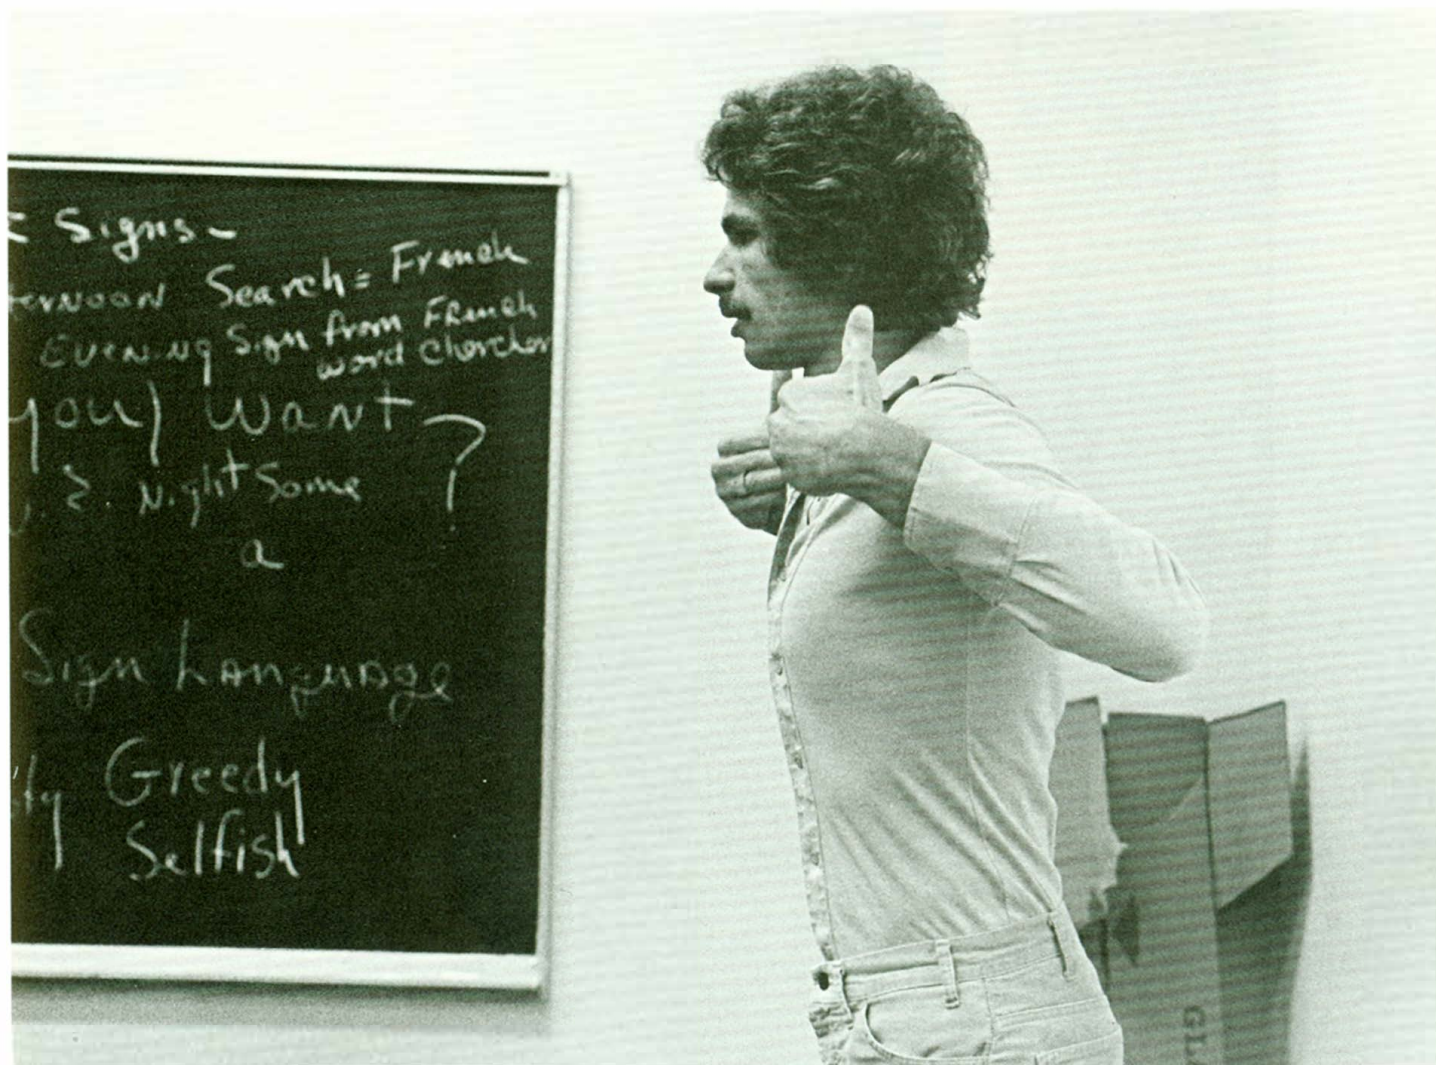 Signs-
ERNOON Search = French
EVENING Sign from French
word Chercher
you) Want ?
& Night Some
a
Sign Language
Greedy
Selfish
GLA